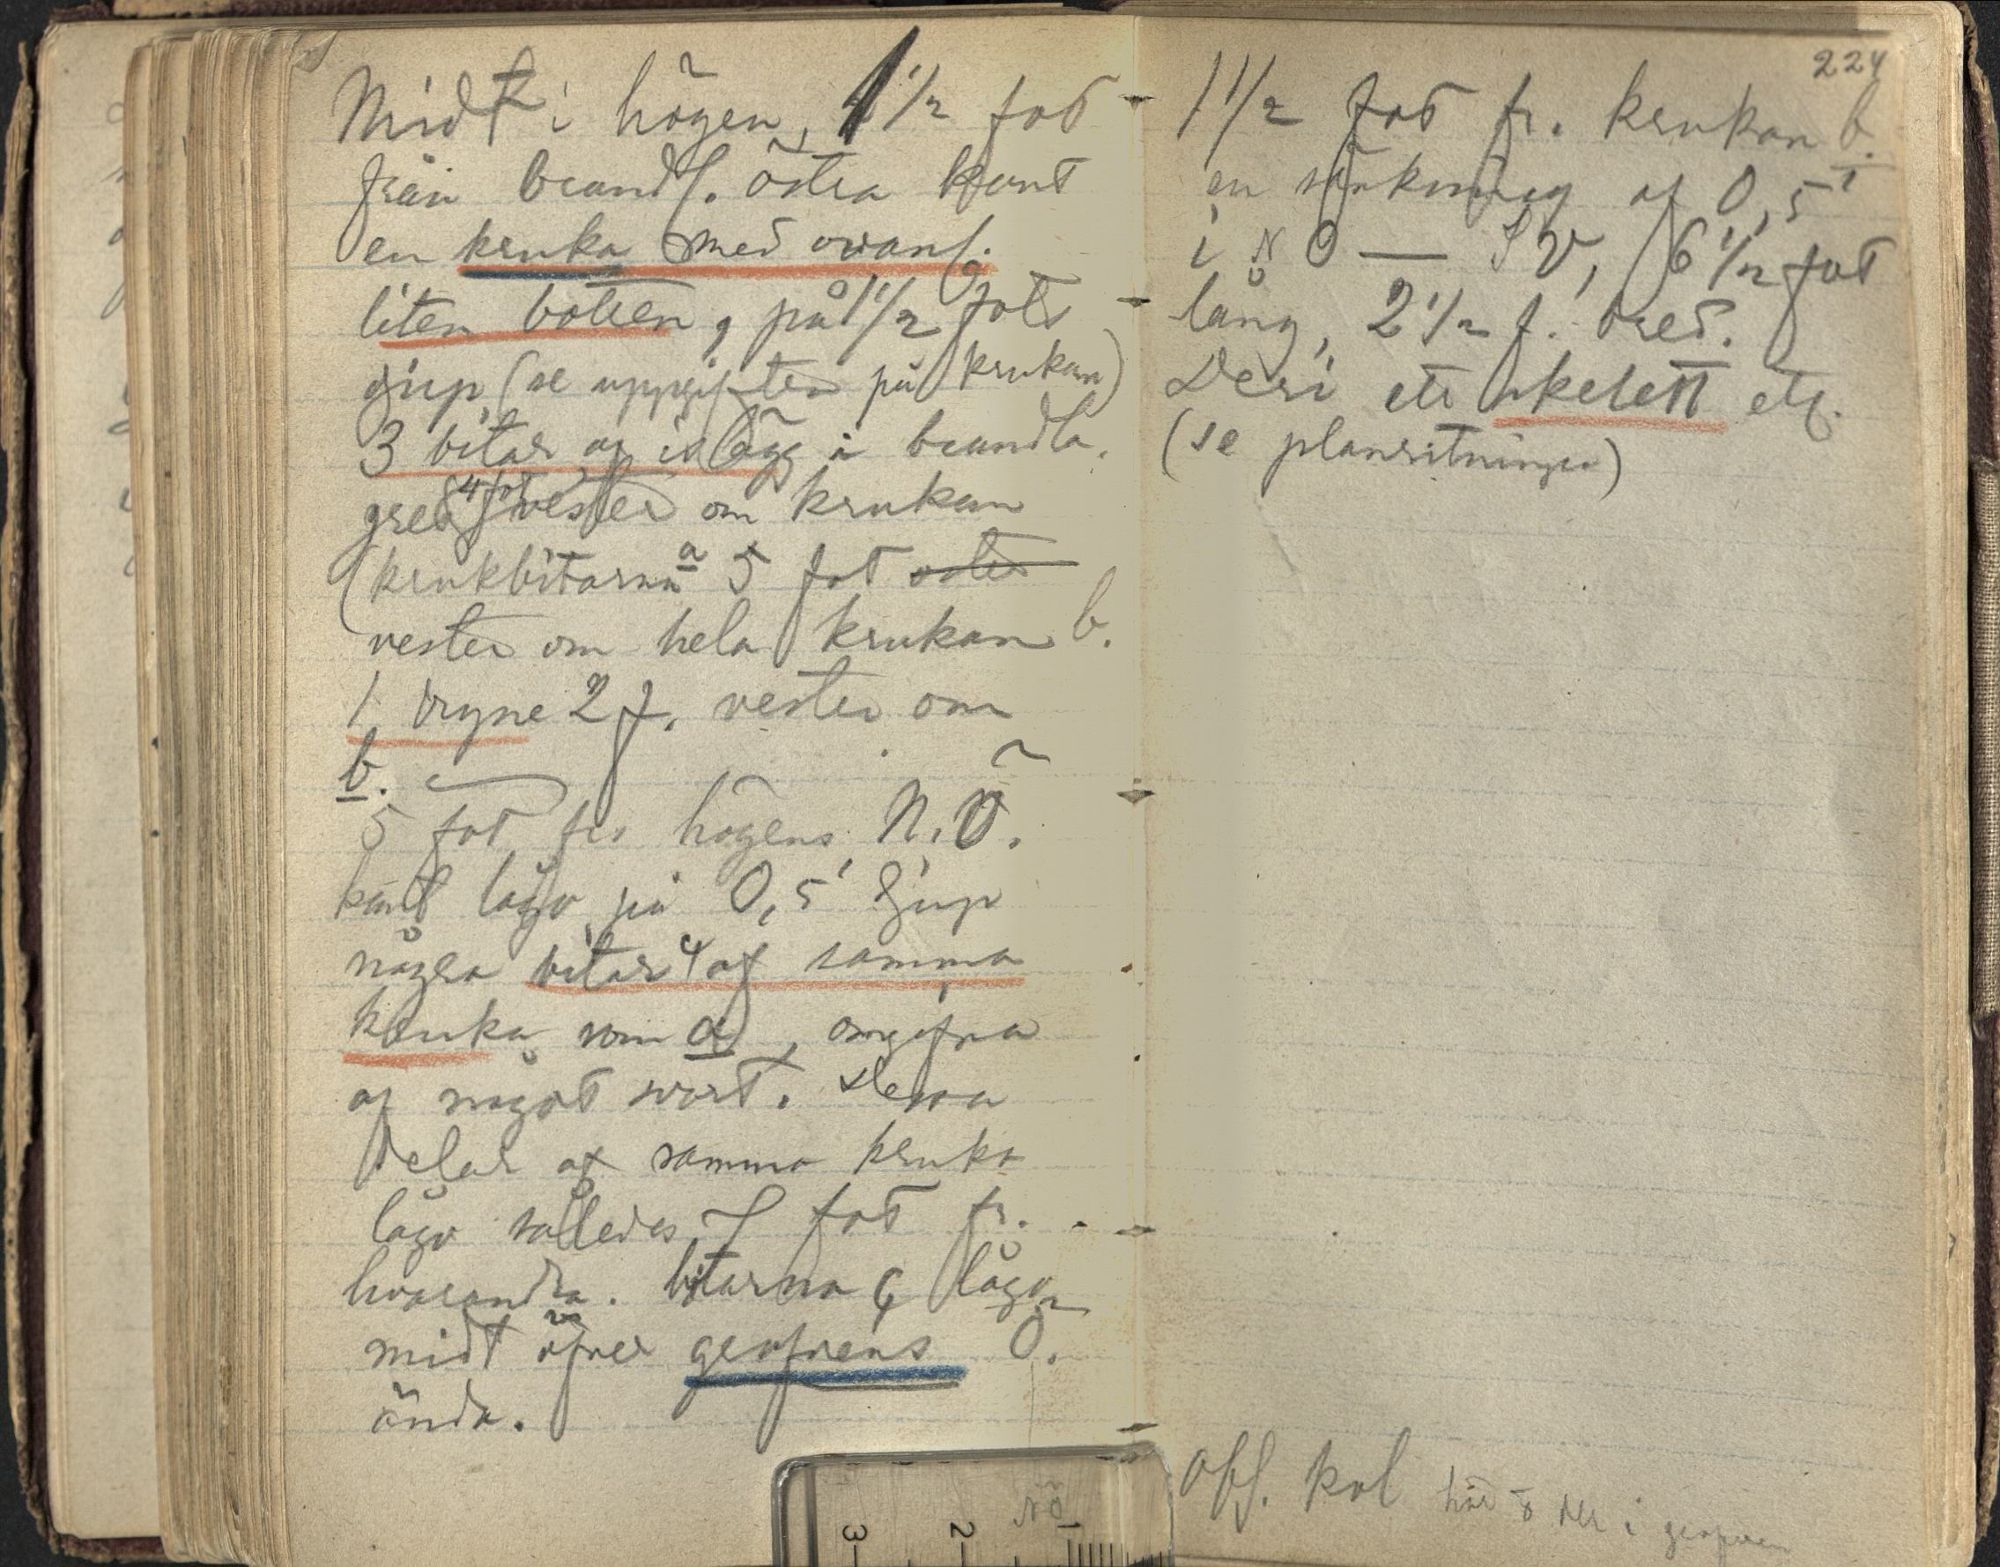 Midt i högen, 1 1/2 fot
från brandf. östra kant
en kruka med ovanl.
liten botten, på 1 1/2 fots
djup, (se uppgiften på krukan)
3 bitar af islägg i brandla.
gret 4 fot vester om krukan
(krukbitarna a 5 fot öster
vester om hela krukan b.
1 bryne 2 f. vester om
b.
5 fot fr. högens N.Ö.
kant lågo på 0,5' djup
några bitar c af samma
kruka som a, omgifna
af något svart. Dessa
delar af samma kruka
lågo således 7 fot fr.
hvarandra. bitarna c lågo
midt öfver grafvens Ö.
ända.
NÖ
3 2 1
224
1 1/2 fot fr. krukan b.
en sänkning af 0,5'
i NO — SV, 6 1/2 fot
lång, 2 1/2 f. bred.
Deri ett skelett etc.
(se planritningen)
Obs. kol här o der i grafven